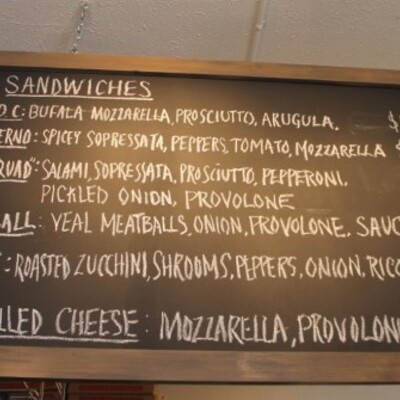 SANDWICHES
D.C: BUFALA MOZZARELLA, PROSCIUTTO, ARUGULA. $
ERNO: SPICEY SOPRESSATA, PEPPERS, TOMATO, MOZZARELLA
QUAD": SALAMI, SOPRESSATA, PROSCIUTTO, PEPPERONI,
PICKLED ONION, PROVOLONE
ALL: VEAL MEATBALLS, ONION, PROVOLONE, SAUC
: ROASTED ZUCCHINI, SHROOMS, PEPPERS, ONION, RICO
LLED CHEESE: MOZZARELLA, PROVOLON